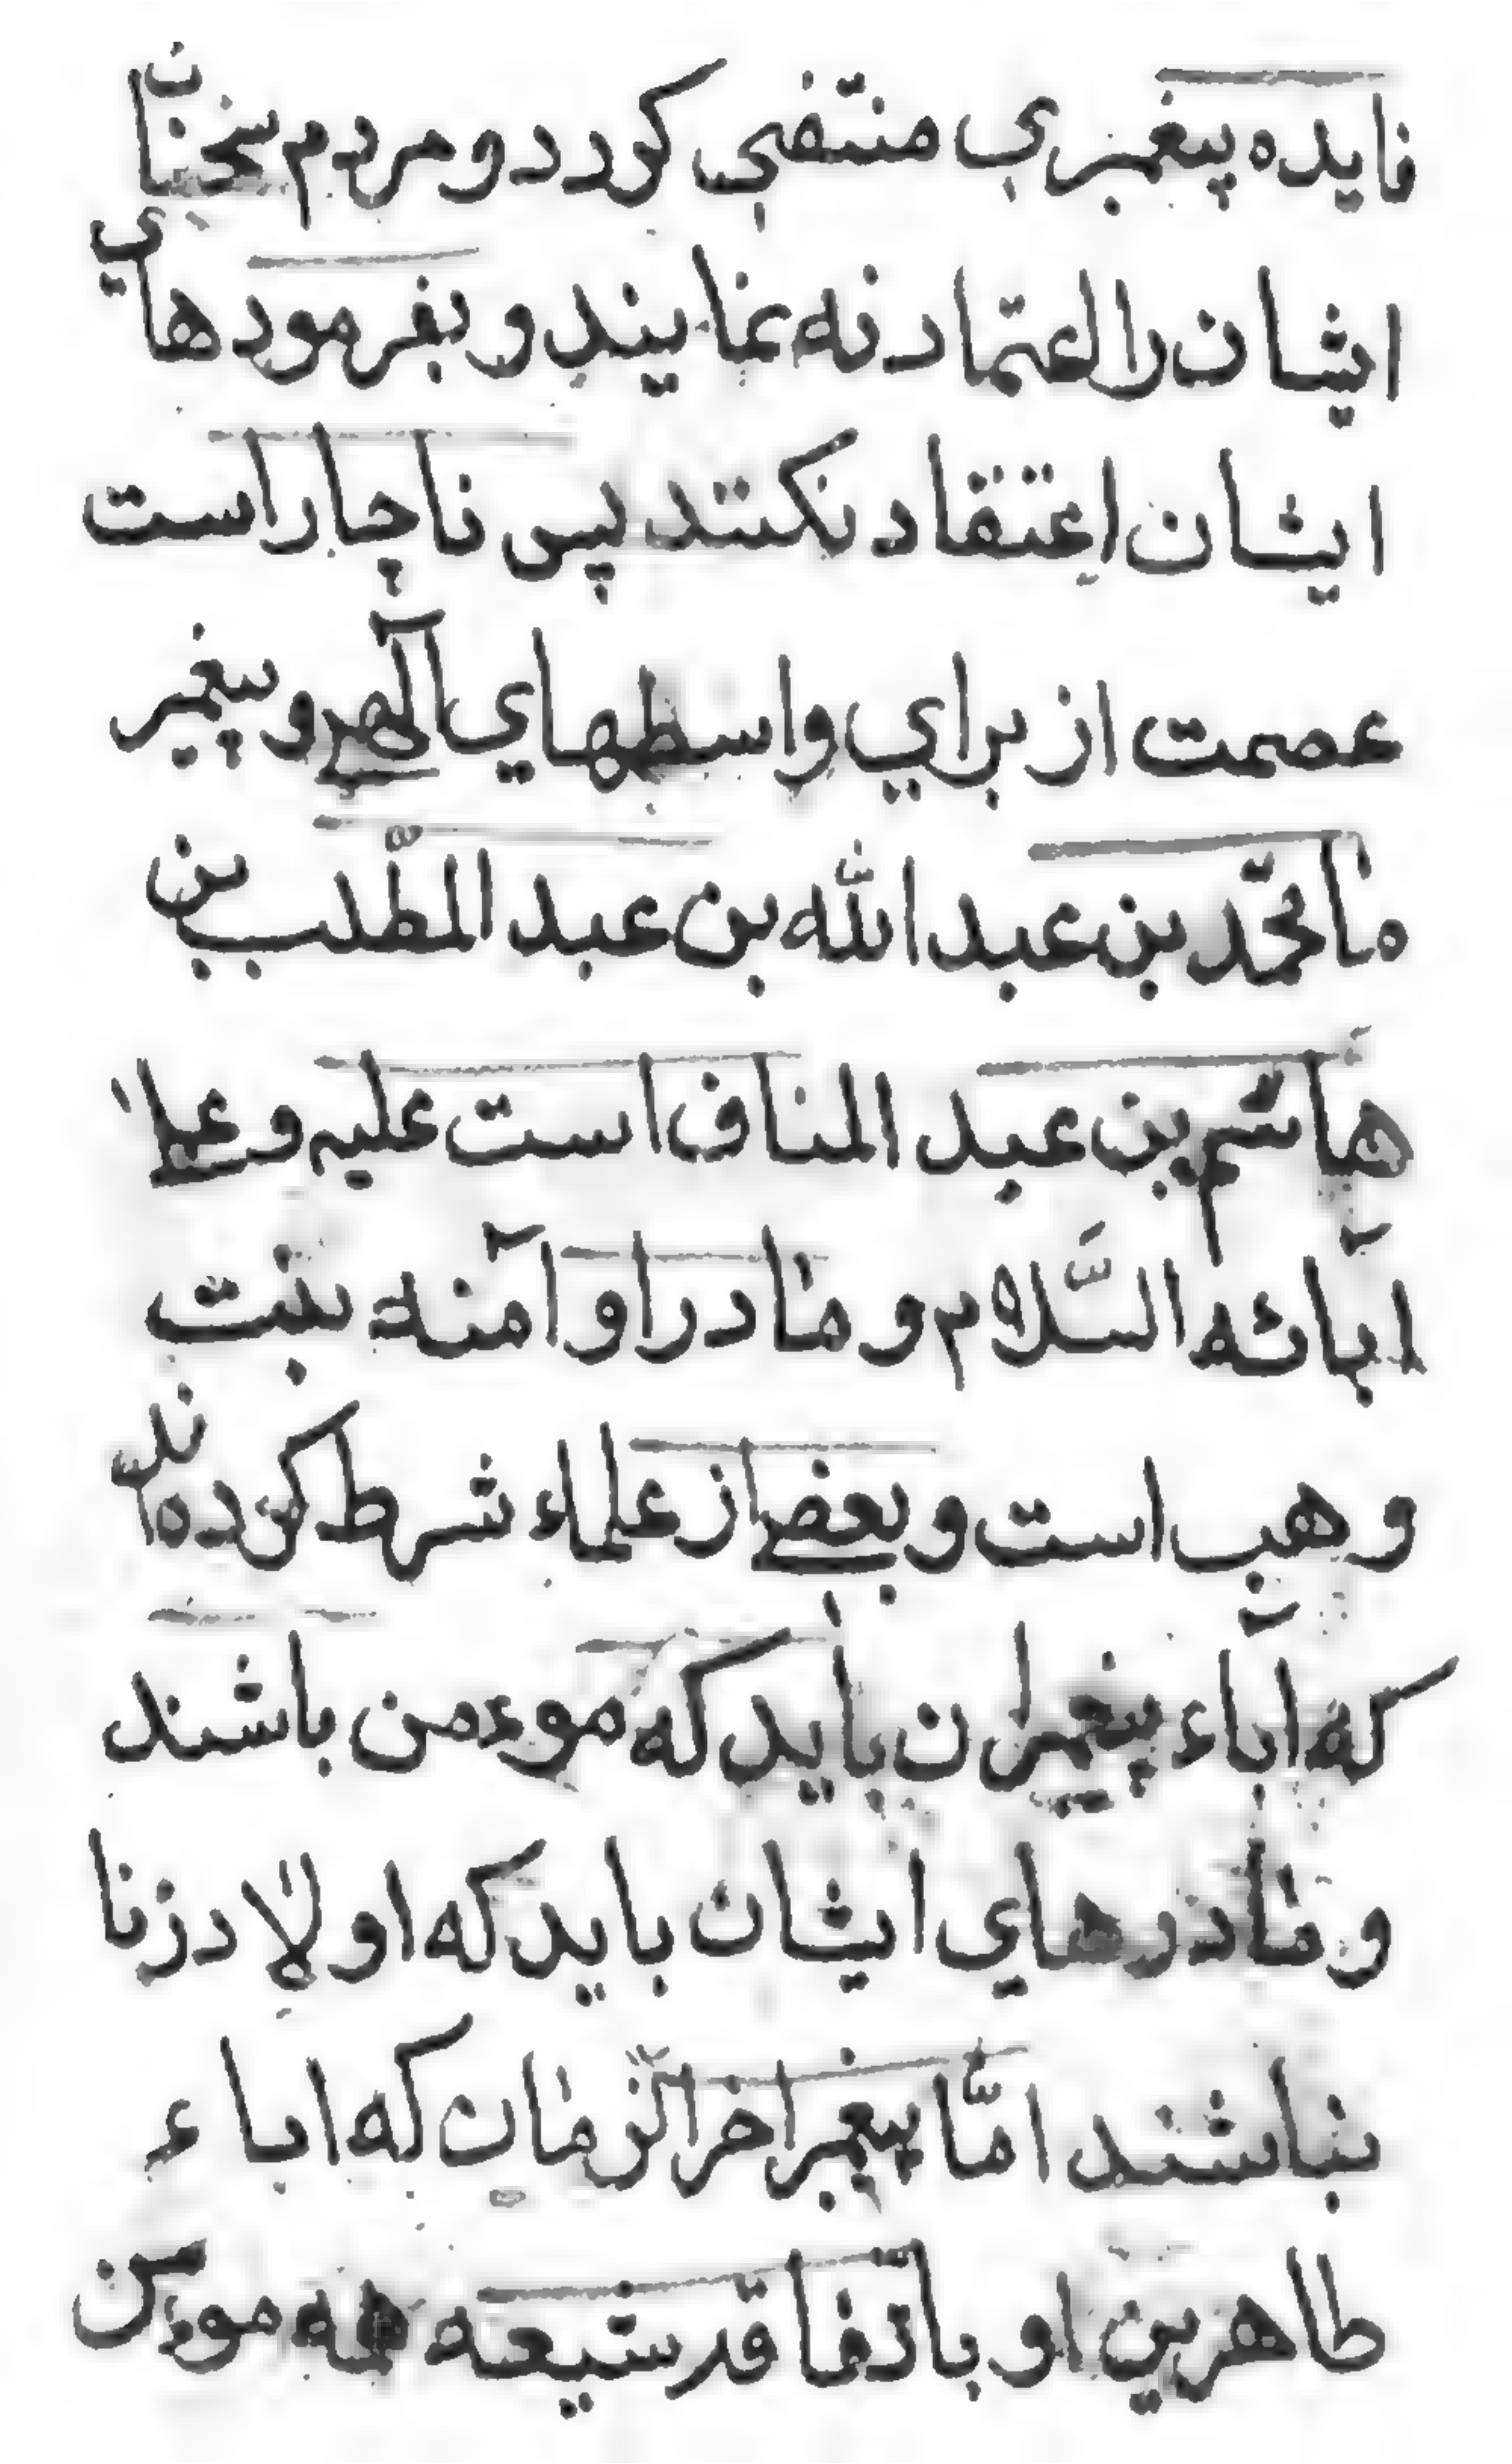 فایده پیغمبری منتفی کوردد و مردم سخنان
ایشان را اعتماد نه نمایند و بفرمودهای
ایشان اعتقاد نکنند پس ناچار است
عصمت از برای واسطهای آلهی و پیغمبر
ما محمّد بن عبد الله بن عبد المطّلب بن
هاشم بن عبد المناف است علیه و علی
ابائه السّلام و مادر او آمنه بنت
وهب است و بعضی از علماء شرط کرده اند
که اباء پیغمبران باید که موءمن باشند
و مادرهای ایشان باید که اولاد زنا
نباشند امّا پیغمبر اخر الزمان که اباء
طاهرین او باتفاق فرشیعه همه موءمن